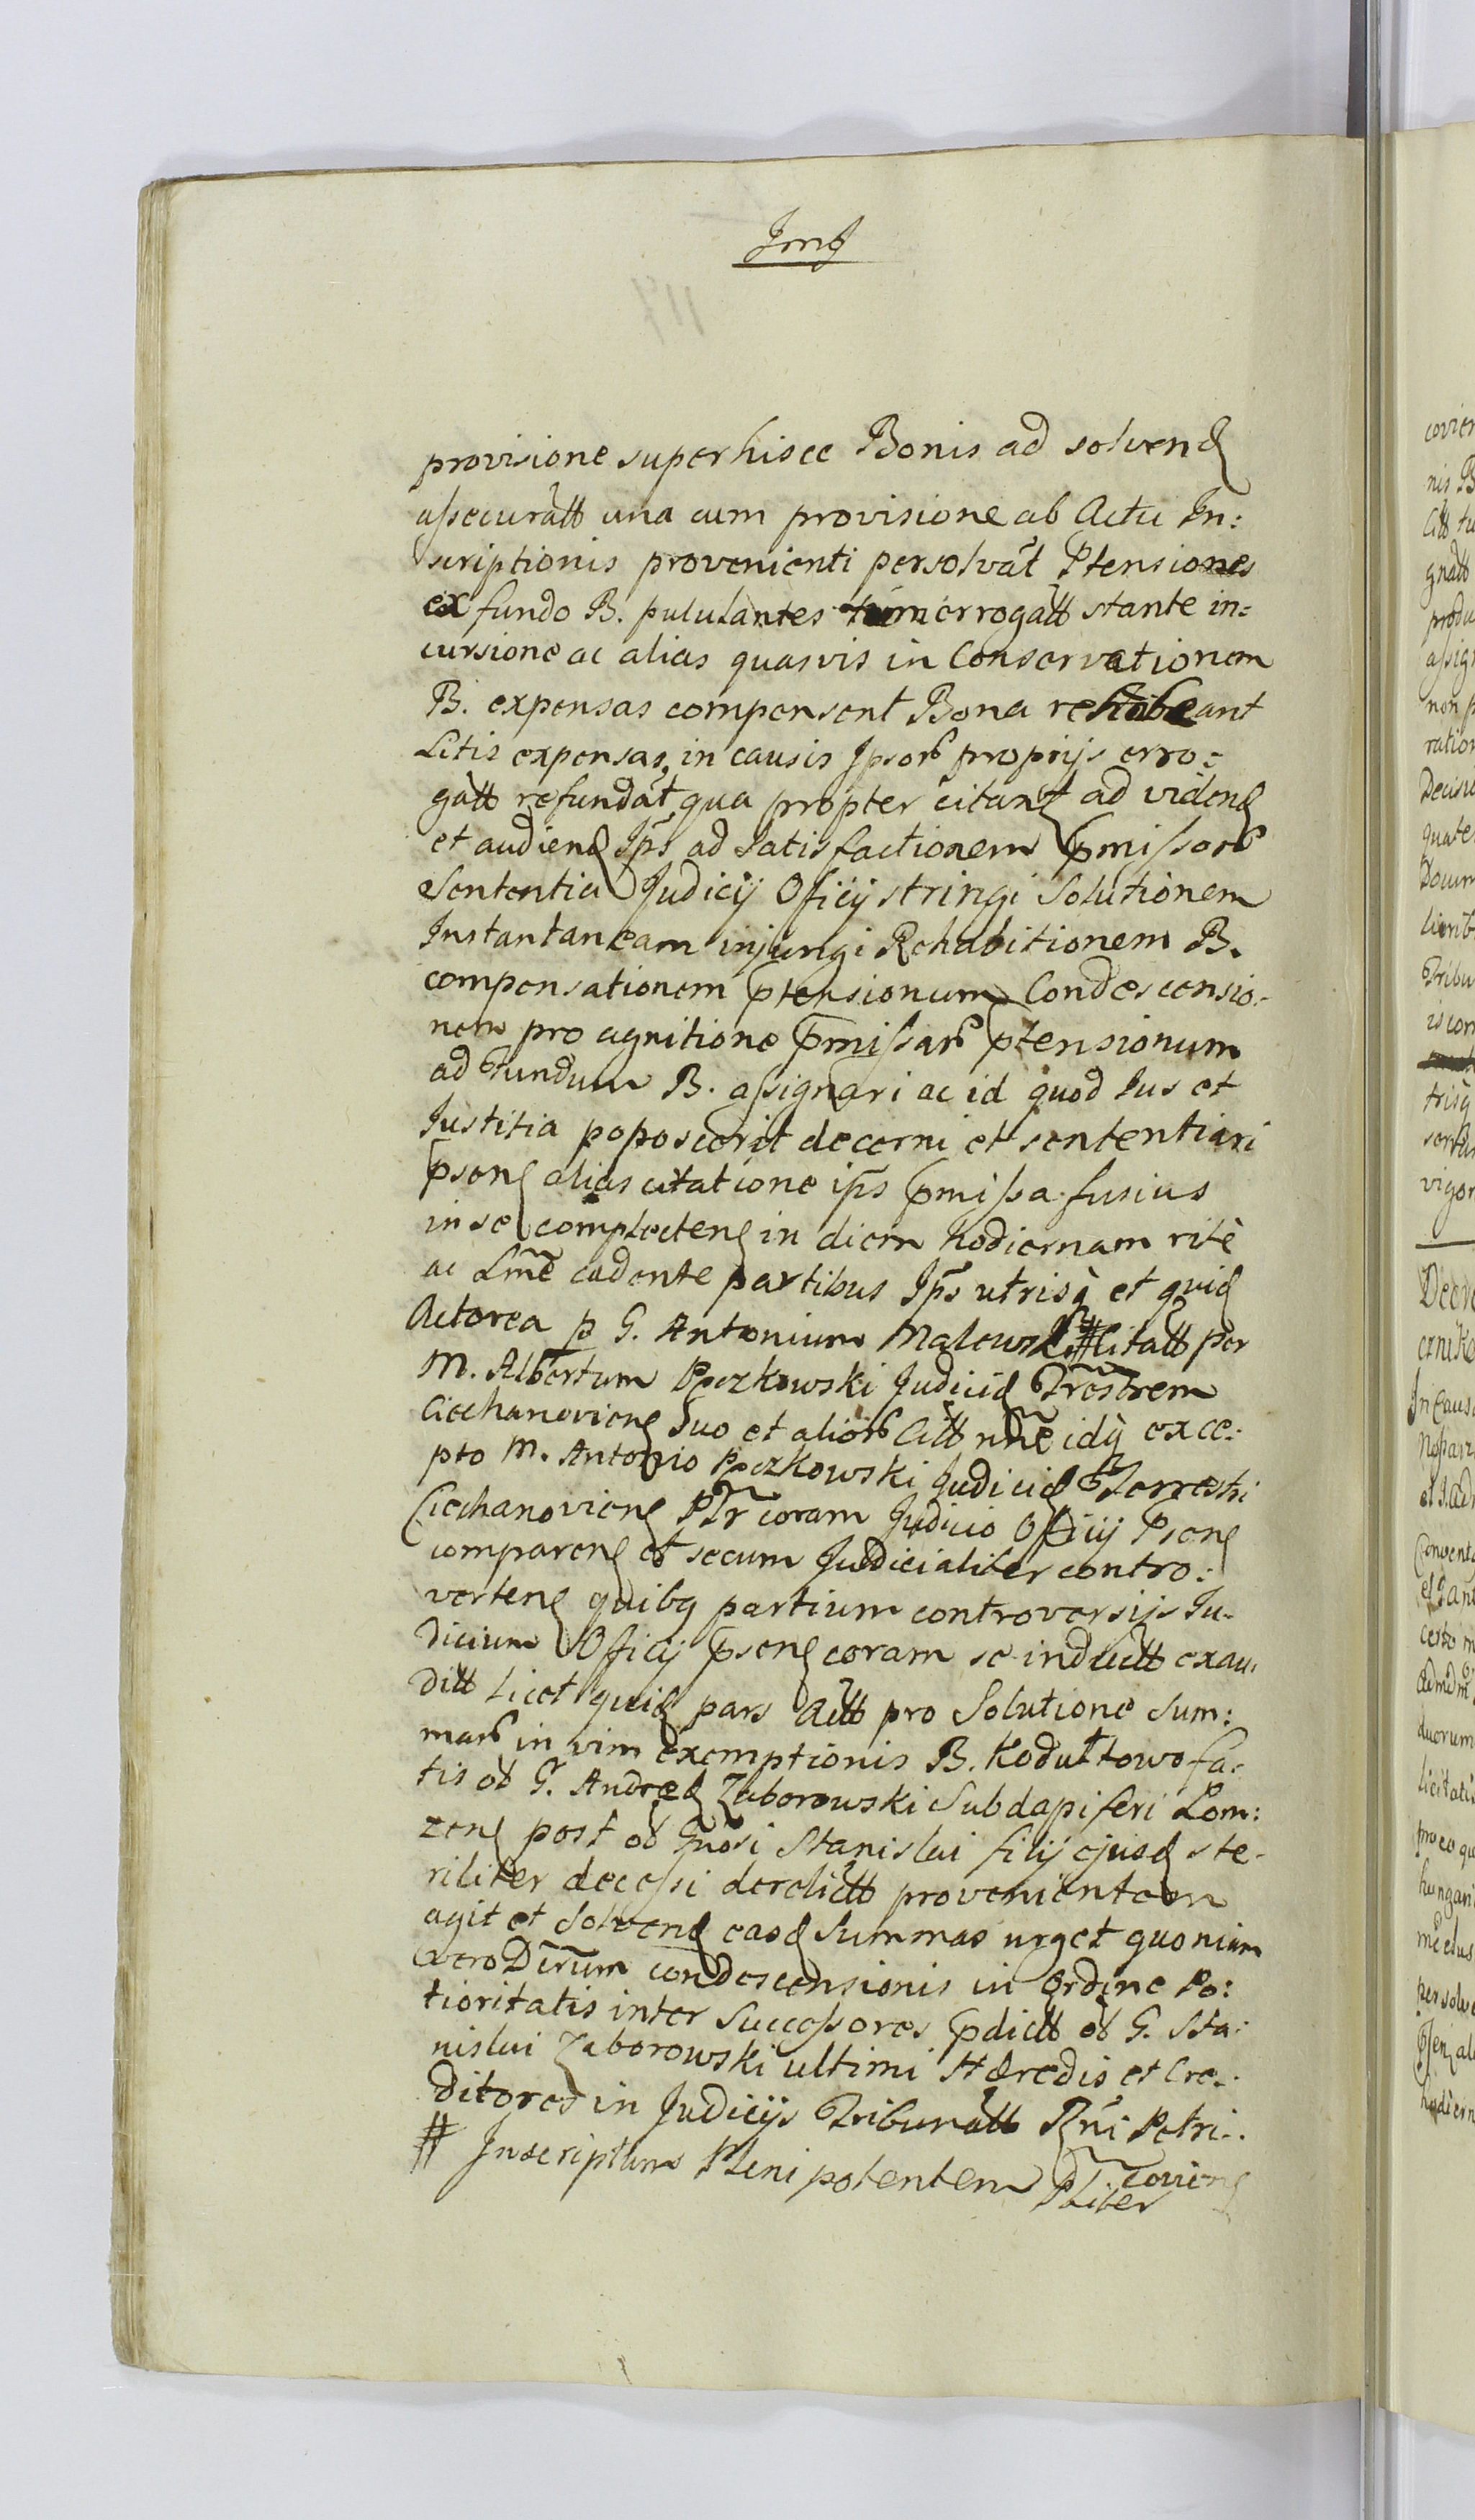 provisione super hisce Bonis ad solvend
assecuratt una cum provisione ab Actu In:
scriptionis provenienti persolvãt Ptensiones
ex fundo B. pululantes tum errogatt stante in=
cursione ac alias quasvis in Conservationem
B. expensas compensent Bona rehabeant
Litis expensas, in causis Ipsorb proprijs erro:
gatt refundãt, qua propter citant ad vidend
et audiend Ips ad satisfactionem pmissorb
Sententia Judicij Oficij stringi Solutionem
Instantaneam injungi Rehabitionem B.
compensationem ptensionum Condescensio:
nem pro agnitione pmissarb ptensionum
ad Fundum B. assignari ac id quod Ius et
Iustitia poposcerit decerni et sententiari
psens alias citatione ips pmissa fusius
in se complectens in diem hodiernam ritè
ac Lmẽ cadente partibus Ips utrisq et quid
Actorea p G. Antonium Malewski # Citatt per
M. Albertum Pęczkowski Judicid Trestrem
Ciechanoviens Suo et aliorb Citt nñe idq exce:
pto M. Antonio Pęczkowski Judicid Terrestri
Ciechanoviens Ptr coram Judicio Oficij Psens
comparens et secum Judicialiter contro:
vertens quibq partium controversijs Ju-
dicium Oficij psens coram se inductt exau:
ditt licet quid pars Actt pro Solutione Sum:
marb in vim exemptionis B. Kodułtowo fa:
tis ob G. Andreę Zaborowski Subdapiferi Lom:
zens post ob Gnosi Stanislai filij ejusd ste-
riliter decessi derelictt provenientem
agit et Solvend easd Summas urget quoniam
vero Dcrum condescensionis in Ordine Po:
tioritatis inter Successores pdictt ob G. Sta:
nislai Zaborowski ultimi Hæredis et Cre:
ditores in Judicijs Tribunatt Rgni Petri:
coviens
# Inscriptum Plenipotentem Ptliter